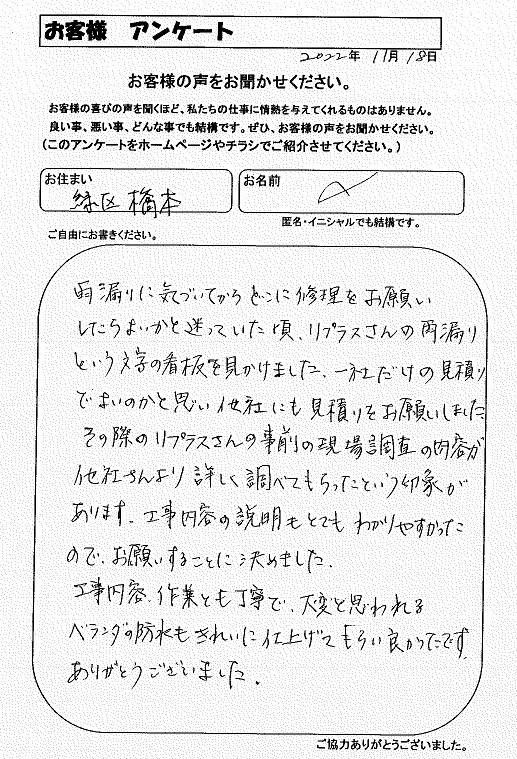 お客様 アンケート
2022年 11月 18日
お客様の声をお聞かせください。
お客様の喜びの声を聞くほど、私たちの仕事に情熱を与えてくれるものはありません。
良い事、悪い事、どんな事でも結構です。ぜひ、お客様の声をお聞かせください。
(このアンケートをホームページやチラシでご紹介させてください。)
お住まい
緑区 橋本
お名前
匿名・イニシャルでも結構です。
ご自由にお書きください。
雨漏りに気づいてからどこに修理をお願い
したらよいかと迷っていた頃、リプラスさんの雨漏り
という文字の看板を見かけました。一社だけの見積り
でよいのかと思い他社にも見積りをお願いしました
その際のリプラスさんの事前の現場調査の内容が
他社さんより詳しく調べてもらったという印象が
あります。工事内容の説明もとてもわかりやすかった
ので、お願いすることに決めました。
工事内容、作業とも丁寧で、大変と思われる
ベランダの防水もきれいに仕上げてもらい良かったです。
ありがとうございました。
ご協力ありがとうございました。